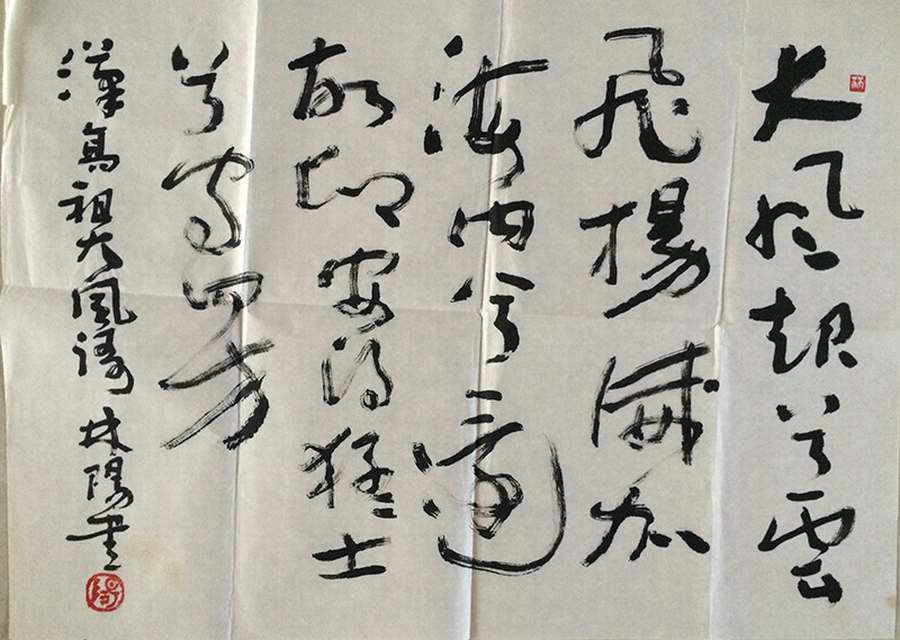 大風起兮雲
飛揚威加
海内兮還
故鄉安得猛士
兮守四方
漢高祖大風謌 林陽書